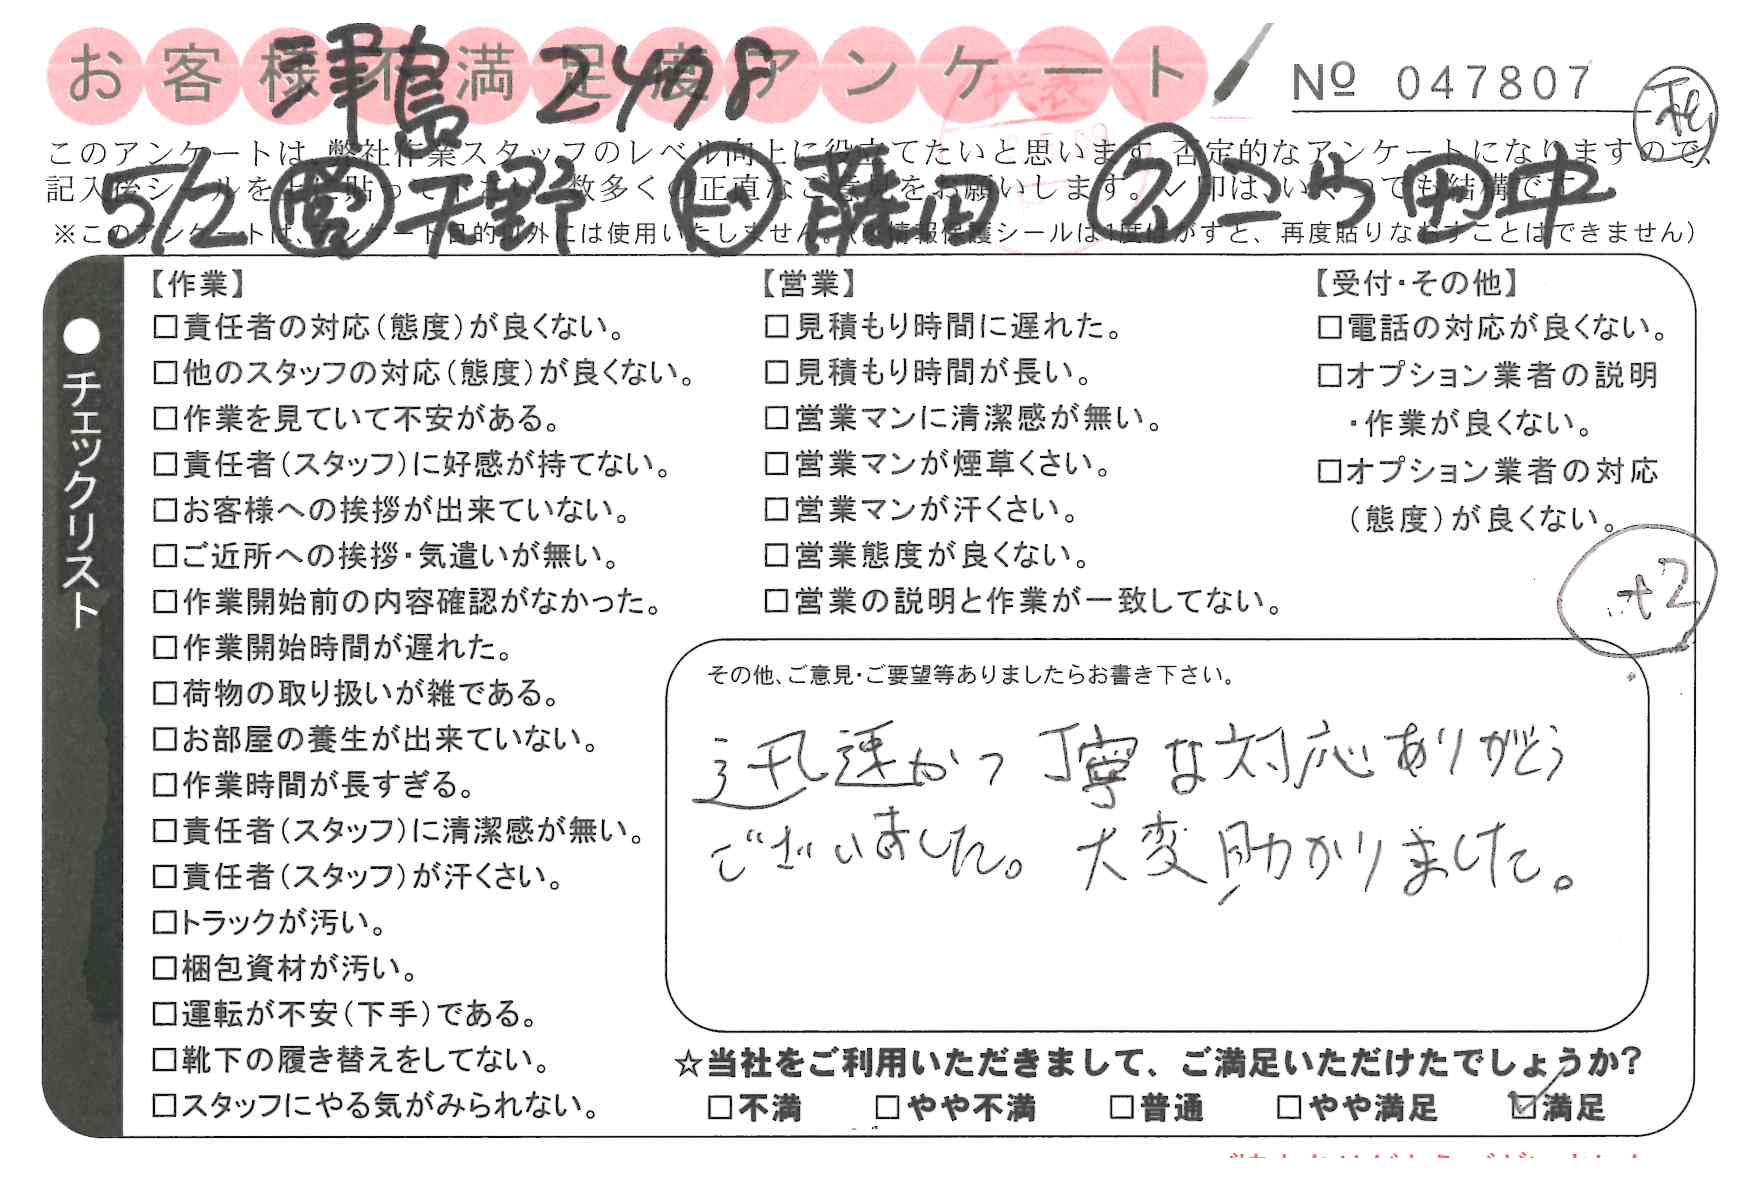 お客様不満足度アンケート
津島 2498
№ 047807
このアンケートは、弊社作業スタッフのレベル向上に役立てたいと思います。否定的なアンケートになりますので、
記入後シールを上に貼って下さい。数多くの正直なご意見をお願いします。レ印は、いくつでも結構です。
5/2 営 天野 ト 藤田 ス こうら 田中
※このアンケートは、アンケート目的以外には使用いたしません。(※情報保護シールは1度はがすと、再度貼りなおすことはできません)
●チェックリスト
【作業】
□責任者の対応(態度)が良くない。
□他のスタッフの対応(態度)が良くない。
□作業を見ていて不安がある。
□責任者(スタッフ)に好感が持てない。
□お客様への挨拶が出来ていない。
□ご近所への挨拶・気遣いが無い。
□作業開始前の内容確認がなかった。
□作業開始時間が遅れた。
□荷物の取り扱いが雑である。
□お部屋の養生が出来ていない。
□作業時間が長すぎる。
□責任者(スタッフ)に清潔感が無い。
□責任者(スタッフ)が汗くさい。
□トラックが汚い。
□梱包資材が汚い。
□運転が不安(下手)である。
□靴下の履き替えをしてない。
□スタッフにやる気がみられない。
【営業】
□見積もり時間に遅れた。
□見積もり時間が長い。
□営業マンに清潔感が無い。
□営業マンが煙草くさい。
□営業マンが汗くさい。
□営業態度が良くない。
□営業の説明と作業が一致してない。
【受付・その他】
□電話の対応が良くない。
□オプション業者の説明
・作業が良くない。
□オプション業者の対応
(態度)が良くない。
+2
その他、ご意見・ご要望等ありましたらお書き下さい。
迅速かつ丁寧な対応ありがとう
ございました。大変助かりました。
☆当社をご利用いただきまして、ご満足いただけたでしょうか?
□不満 □やや不満 □普通 □やや満足 ☑満足